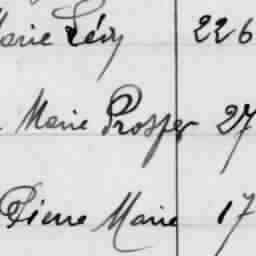 Marie Lévy 226
Marie Prosper 27
Pierre Marie 17